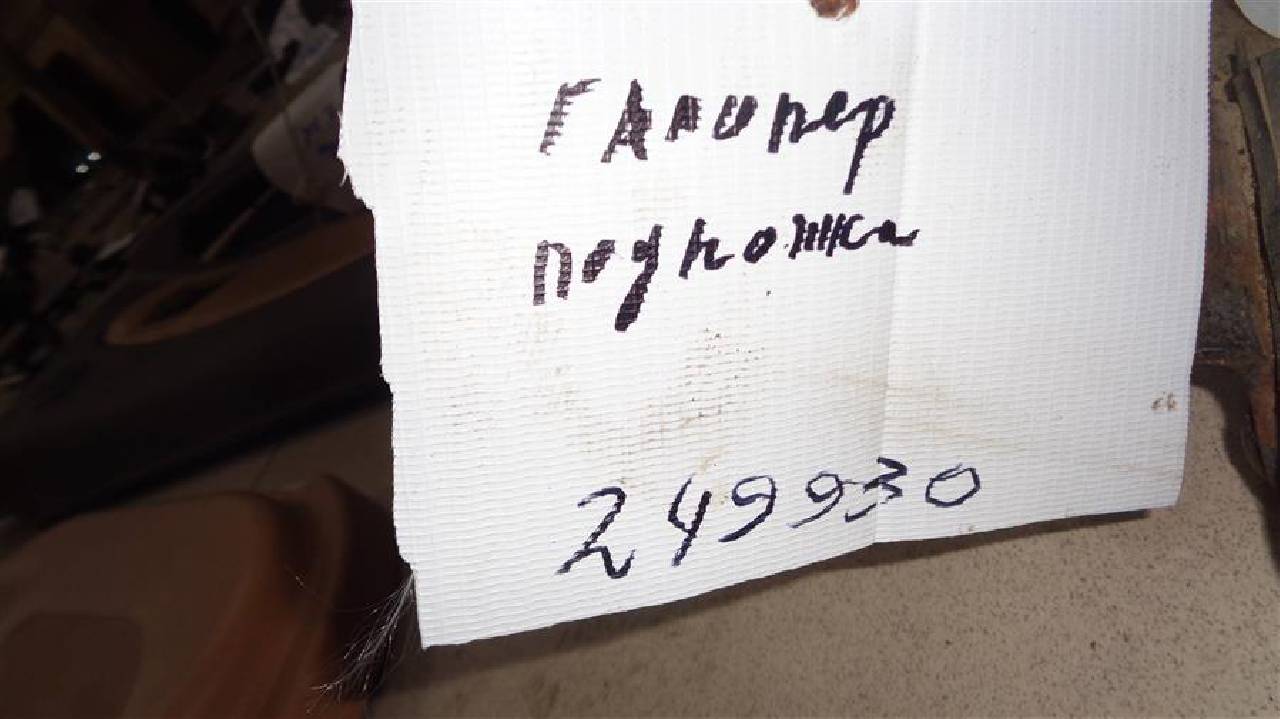 Галопер
подножка
249930